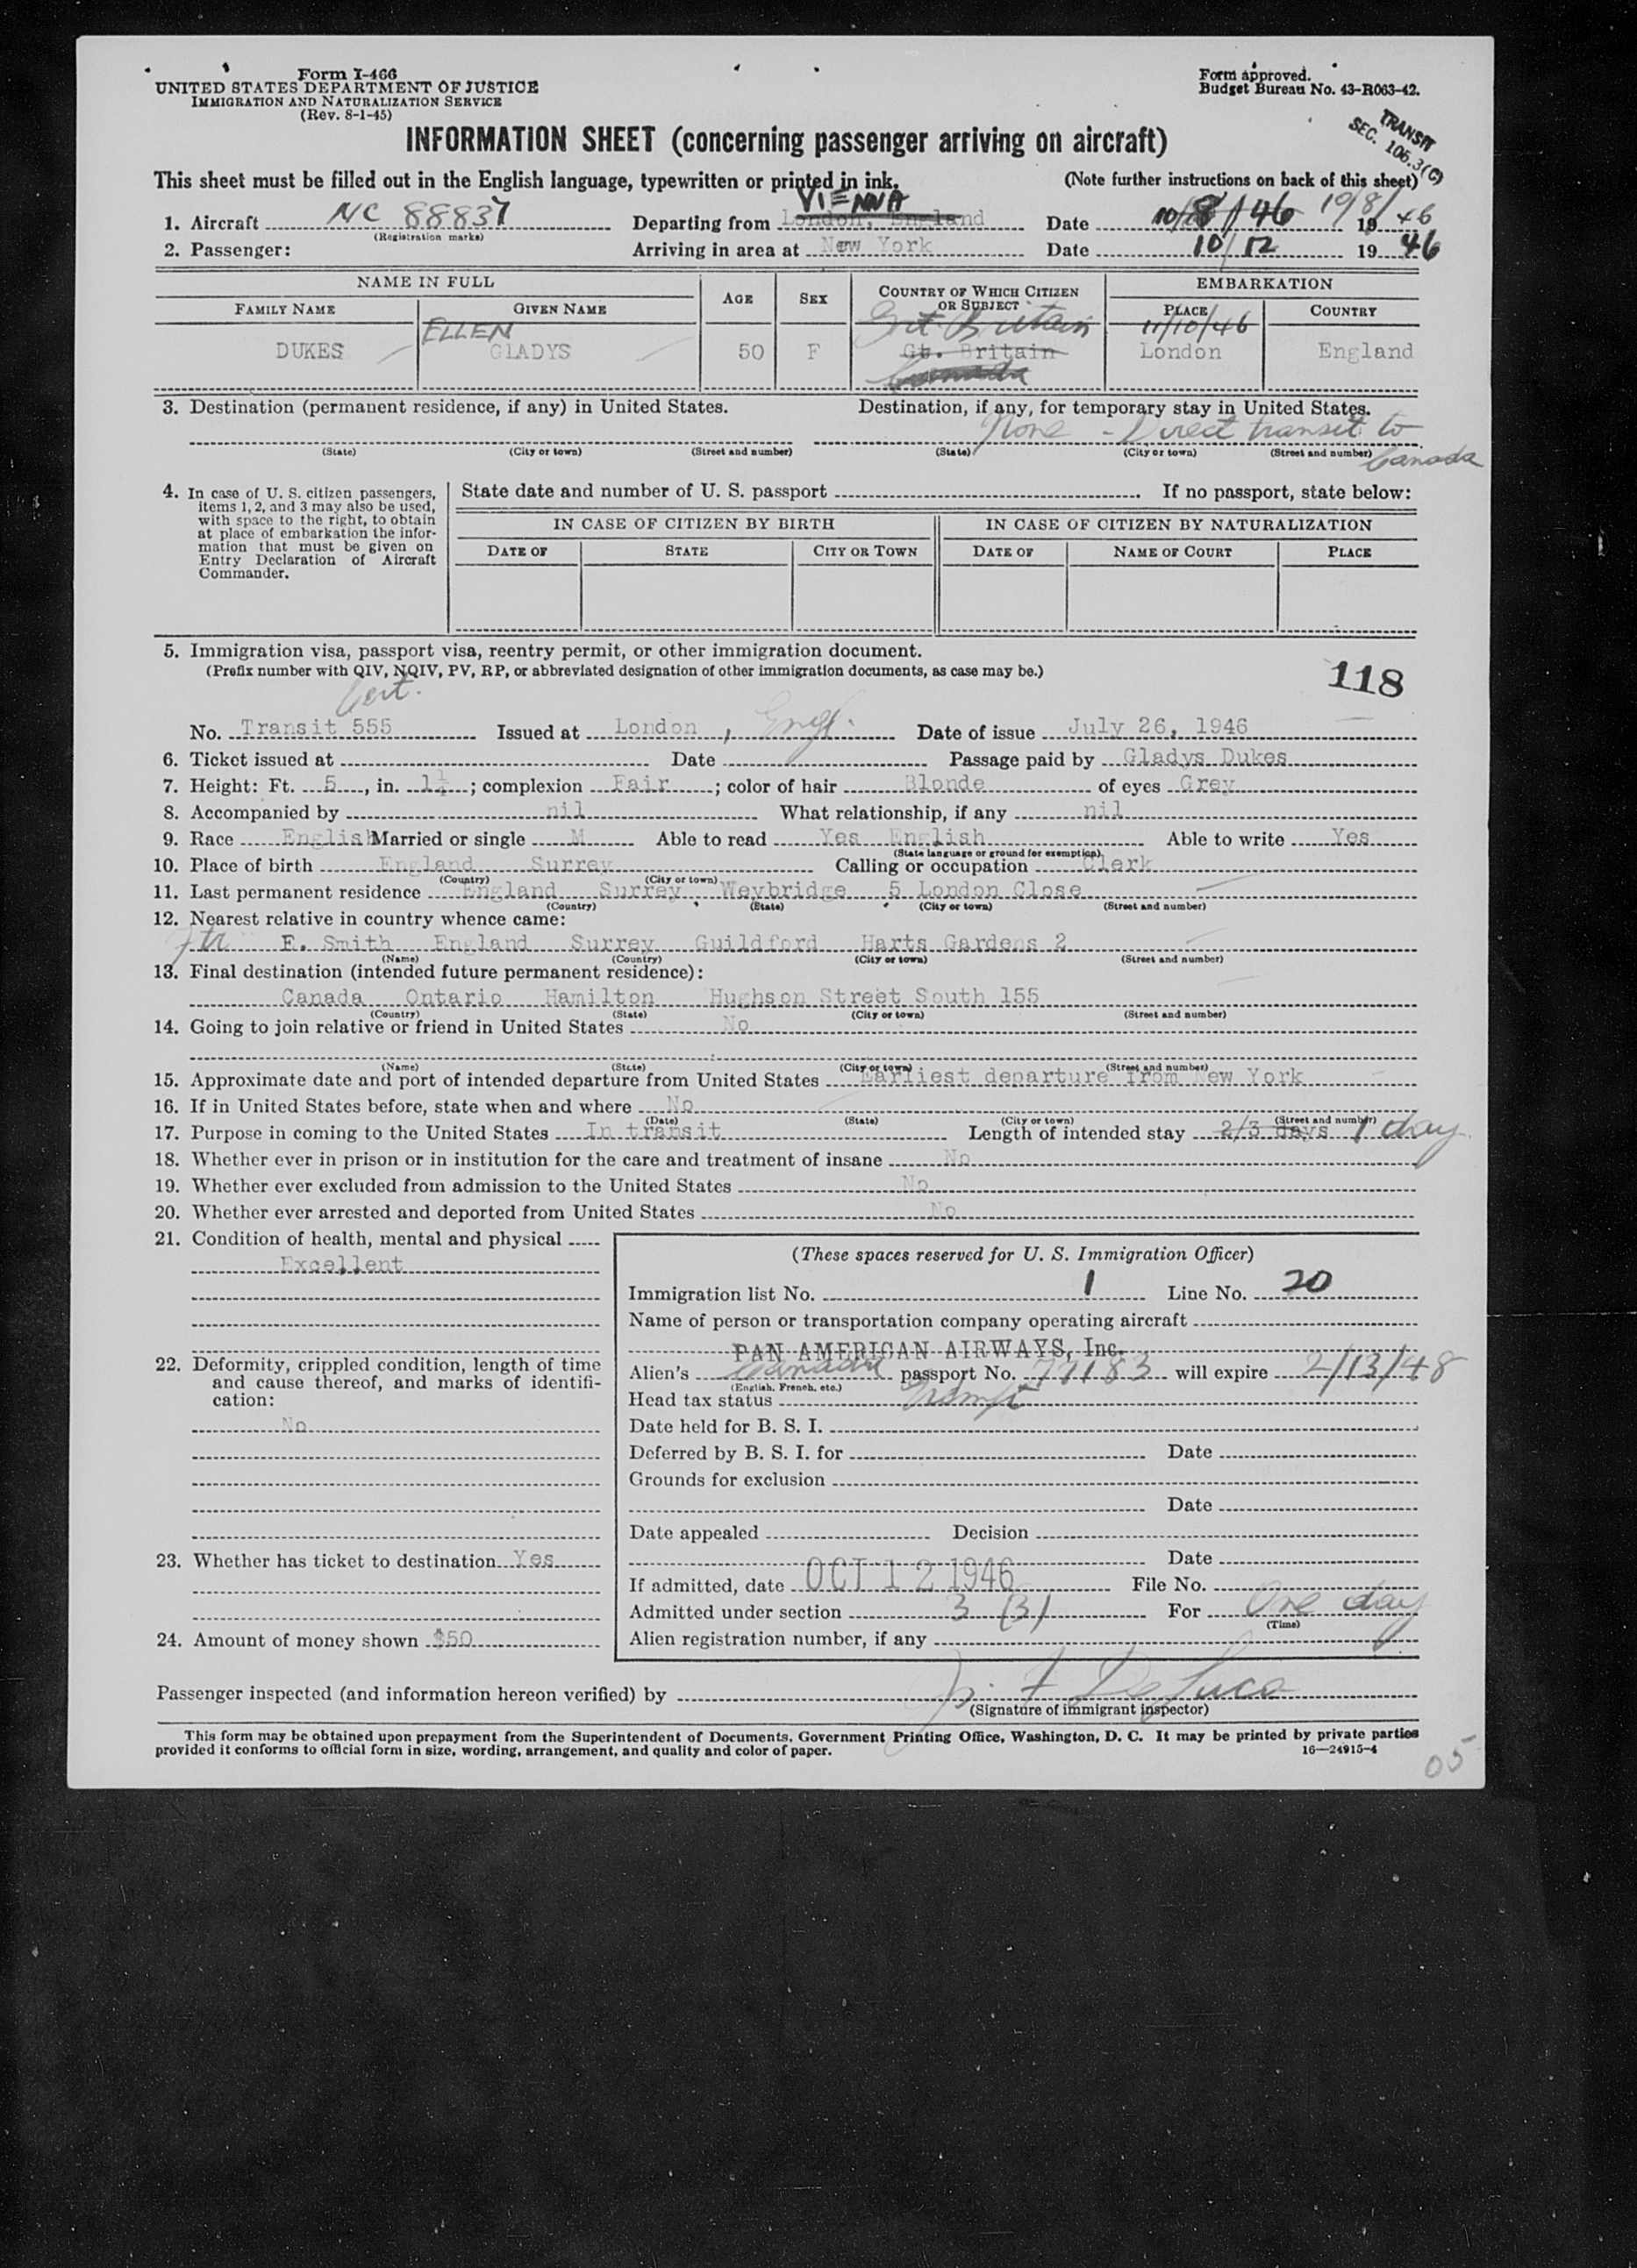 Form I-466
UNITED STATES DEPARTMENT OF JUSTICE
IMMIGRATION AND NATURALIZATION SERVICE
(Rev. 8-1-45)
Form approved.
Budget Bureau No. 43-R063-42.
TRANSIT
SEC. 106.3(C)
INFORMATION SHEET (concerning passenger arriving on aircraft)
This sheet must be filled out in the English language, typewritten or printed in ink.
(Note further instructions on back of this sheet)
VIENNA
1. Aircraft NC 88837 Departing from London, England Date 10/8/46 19/8/ 1946
(Registration marks)
2. Passenger: Arriving in area at New York Date 10/12 1946
NAME IN FULL AGE SEX COUNTRY OF WHICH CITIZEN OR SUBJECT EMBARKATION
FAMILY NAME GIVEN NAME PLACE COUNTRY
ELLEN Gt Britain 11/10/46
DUKES GLADYS 50 F Gt. Britain London England
Canada
3. Destination (permanent residence, if any) in United States. Destination, if any, for temporary stay in United States.
None - Direct transit to Canada
(State) (City or town) (Street and number) (State) (City or town) (Street and number)
4. In case of U. S. citizen passengers, items 1, 2, and 3 may also be used, with space to the right, to obtain at place of embarkation the information that must be given on Entry Declaration of Aircraft Commander.
State date and number of U. S. passport . If no passport, state below:
IN CASE OF CITIZEN BY BIRTH IN CASE OF CITIZEN BY NATURALIZATION
DATE OF STATE CITY OR TOWN DATE OF NAME OF COURT PLACE
5. Immigration visa, passport visa, reentry permit, or other immigration document.
(Prefix number with QIV, NQIV, PV, RP, or abbreviated designation of other immigration documents, as case may be.)
118
Cert.
No. Transit 555 Issued at London, Engl. Date of issue July 26, 1946
6. Ticket issued at Date Passage paid by Gladys Dukes
7. Height: Ft. 5, in. 1¼; complexion Fair; color of hair Blonde of eyes Grey
8. Accompanied by nil What relationship, if any nil
9. Race English Married or single M Able to read Yes English Able to write Yes
(State language or ground for exemption)
10. Place of birth England Surrey Calling or occupation Clerk
(Country) (City or town)
11. Last permanent residence England Surrey, Weybridge, 5 London Close
(Country) (State) (City or town) (Street and number)
12. Nearest relative in country whence came:
E. Smith England Surrey Guildford Harts Gardens 2
(Name) (Country) (City or town) (Street and number)
13. Final destination (intended future permanent residence):
Canada Ontario Hamilton Hughson Street South 155
(Country) (State) (City or town) (Street and number)
14. Going to join relative or friend in United States No
(Name) (State) (City or town) (Street and number)
15. Approximate date and port of intended departure from United States Earliest departure from New York
16. If in United States before, state when and where No
(Date) (State) (City or town) (Street and number)
17. Purpose in coming to the United States In transit Length of intended stay 2/3 days 1 day
18. Whether ever in prison or in institution for the care and treatment of insane No
19. Whether ever excluded from admission to the United States No
20. Whether ever arrested and deported from United States No
21. Condition of health, mental and physical
Excellent
22. Deformity, crippled condition, length of time and cause thereof, and marks of identification:
No
23. Whether has ticket to destination Yes
24. Amount of money shown $50
(These spaces reserved for U. S. Immigration Officer)
Immigration list No. 1 Line No. 20
Name of person or transportation company operating aircraft
PAN AMERICAN AIRWAYS, Inc.
Alien's Canadian passport No. 77183 will expire 2/13/48
(English, French, etc.)
Head tax status Exempt
Date held for B. S. I.
Deferred by B. S. I. for Date
Grounds for exclusion
Date
Date appealed Decision
Date
If admitted, date OCT 12 1946 File No.
Admitted under section 3 (3) For One day
(Time)
Alien registration number, if any
Passenger inspected (and information hereon verified) by
(Signature of immigrant inspector)
This form may be obtained upon prepayment from the Superintendent of Documents, Government Printing Office, Washington, D. C. It may be printed by private parties
provided it conforms to official form in size, wording, arrangement, and quality and color of paper. 16—24915-4
05